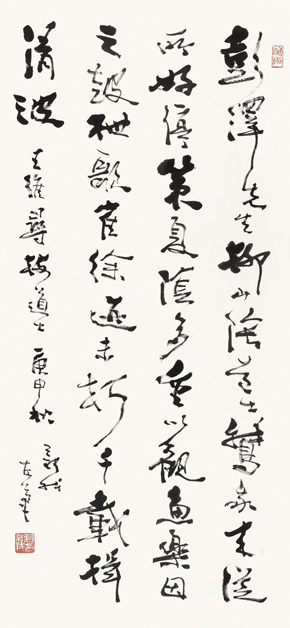 彭澤先生柳山陰道士鵝我來從
所好停策夏陰多重以觀魚樂因
之鼓枻歌崔徐迹未朽千載揖
清波
王維尋梅道士 庚申秋